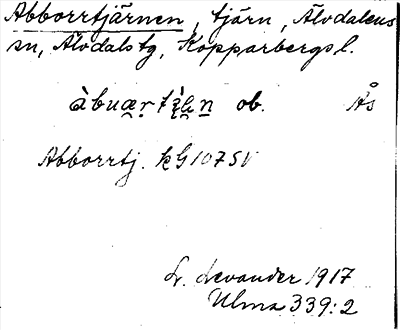 Abborrtjärnen, tjärn, Älvdalens
sn, Älvdals tg, Kopparbergs l.
ob. Ås
Abborrtj. kG107SV
L. Levander 1917
Ulma 339:2